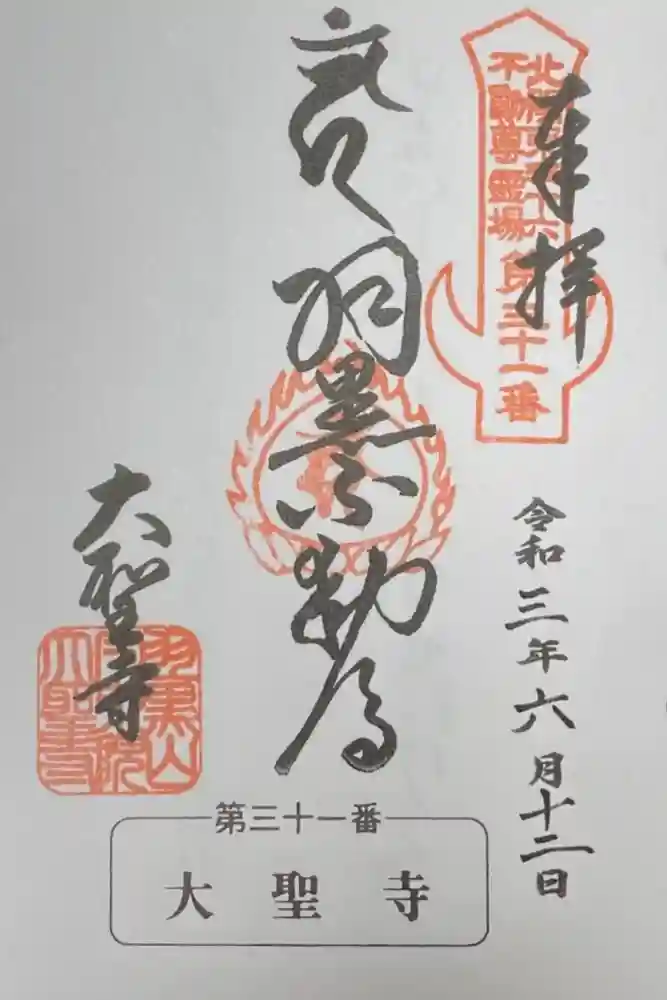 奉拝
北関東三十六
不動尊霊場
第三十一番
令和三年六月十二日
羽黒不動
大聖寺
羽黒山
第三十一番
大聖寺